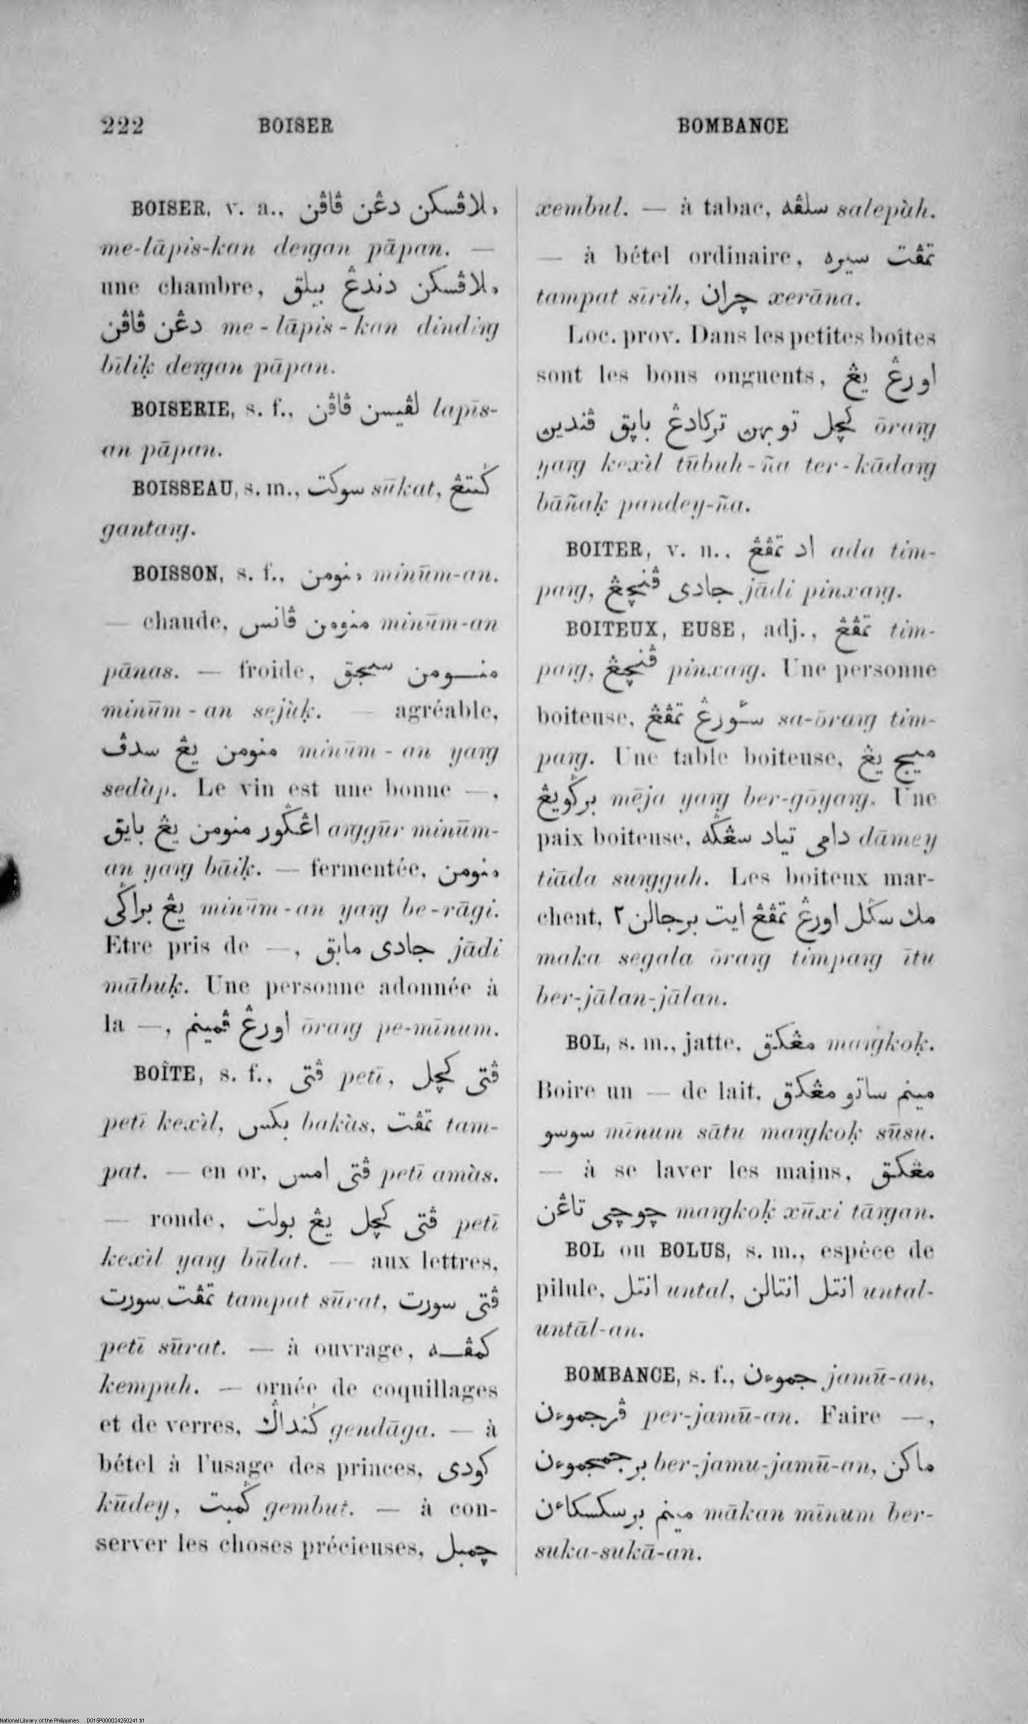 222 BOISER BOMBANCE
BOISER, v. a., ملاڤسكن دڠن ڤاڤن
me-lāpis-kan deɳan pāpan. —
une chambre, ملاڤسكن دندڠ بيلق
دڠن ڤاڤن me-lāpis-kan dindiɳ
bīliḳ deɳan pāpan.
BOISERIE, s. f., لڤيسن ڤاڤن lapīs-
an pāpan.
BOISSEAU, s. m., سوكت sūkat, ڬنتڠ
gantaɳ.
BOISSON, s. f., منومن minūm-an.
— chaude, منومن ڤانس minūm-an
pānas. — froide, منومن سجق
minūm-an sejùḳ. — agréable,
منومن يڠ سدڤ minūm-an yaɳ
sedàp. Le vin est une bonne —,
اڠڬور منومن يڠ بايق aɳgūr minūm-
an yaɳ bāiḳ. — fermentée, منومن
يڠ براڬي minūm-an yaɳ be-rāgi.
Etre pris de —, جادى مابق jādi
mābuḳ. Une personne adonnée à
la —, اورڠ ڤمينم ōraɳ pe-mīnum.
BOÎTE, s. f., ڤتى petī, ڤتى كچل
petī kexìl, بكس bakàs, تمڤت tam-
pat. — en or, ڤتى امس petī amàs.
— ronde, ڤتى كچل يڠ بولت petī
kexìl yaɳ būlat. — aux lettres,
تمڤت سورت tampat sūrat, ڤتى سورت
petī sūrat. — à ouvrage, كمڤه
kempuh. — ornée de coquillages
et de verres, ڬنداڬ gendāga. — à
bétel à l'usage des princes, كودى
kūdey, ڬمبت gembut. — à con-
server les choses précieuses, چمبل
xembul. — à tabac, سلڤه salepàh.
— à bétel ordinaire, تمڤت سيره
tampat sīrih, چران xerāna.
Loc. prov. Dans les petites boîtes
sont les bons onguents, اورڠ يڠ
كچل توبهن تركادڠ باڽق ڤندين ōraɳ
yaɳ kexìl tūbuh-ña ter-kādaɳ
bāñaḳ pandey-ña.
BOITER, v. n., اد تمڤڠ ada tim-
paɳ, جادى ڤنچڠ jādi pinxaɳ.
BOITEUX, EUSE, adj., تمڤڠ tim-
paɳ, ڤنچڠ pinxaɳ. Une personne
boiteuse, سؤورڠ تمڤڠ sa-ōraɳ tim-
paɳ. Une table boiteuse, ميج يڠ
برڬويڠ mēja yaɳ ber-gōyaɳ. Une
paix boiteuse, دامى تياد سڠڬه dāmey
tiāda suɳguh. Les boiteux mar-
chent, مك سڬل اورڠ تمڤڠ ايت برجالن٢
maka segala ōraɳ timpaɳ ītu
ber-jālan-jālan.
BOL, s. m., jatte, مڠكق maɳkoḳ.
Boire un — de lait, مينم ساتو مڠكق
سوسو mīnum sātu maɳkoḳ sūsu.
— à se laver les mains, مڠكق
چوچى تاڠن maɳkoḳ xūxi tāɳan.
BOL ou BOLUS, s. m., espéce de
pilule, انتل untal, انتل انتالن untal-
untāl-an.
BOMBANCE, s. f., جموءن jamū-an,
ڤرجموءن per-jamū-an. Faire —,
برجمجموءن ber-jamu-jamū-an, ماكن
مينم برسكسكاءن mākan mīnum ber-
suka-sukā-an.
National Library of the Philippines